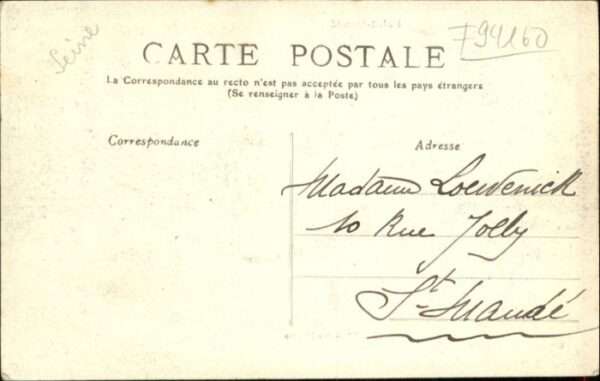 Seine
F94160
CARTE POSTALE
La Correspondance au recto n'est pas acceptée par tous les pays étrangers
(Se renseigner à la Poste)
Correspondance
Adresse
Madame Loewenick
10 Rue Jolly
St-Mandé